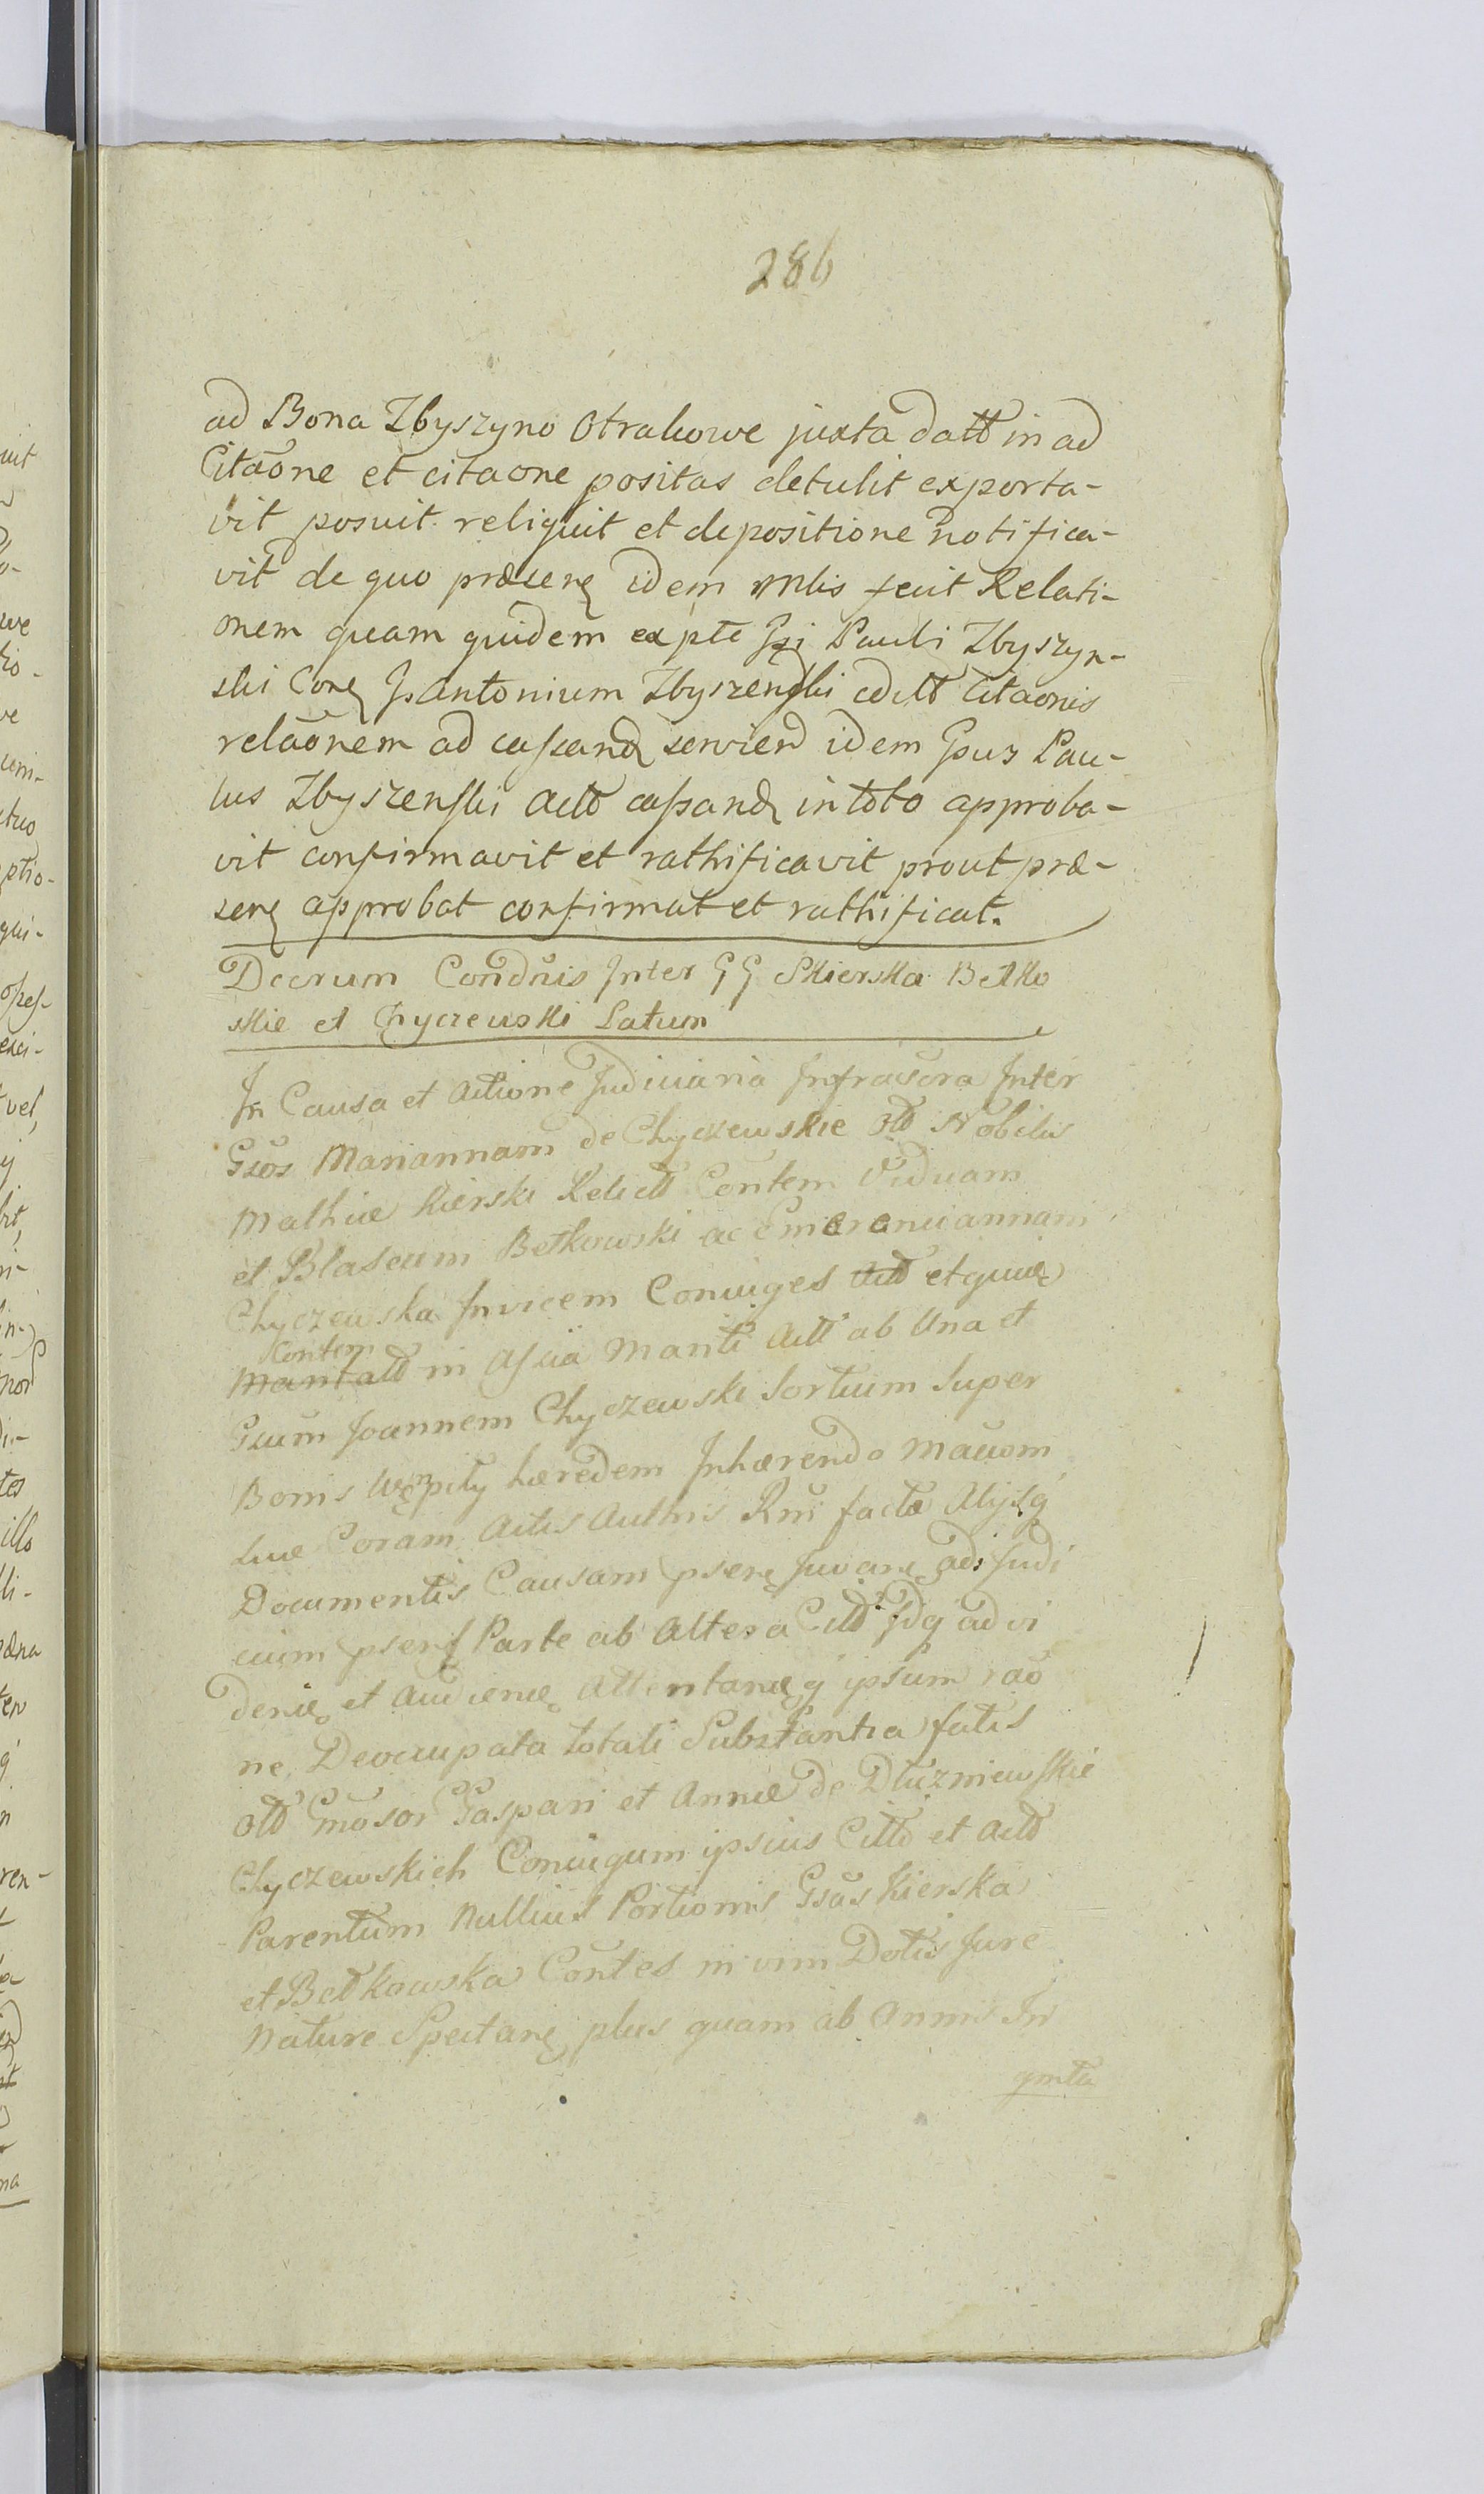 286
ad Bona Zbyszyno Otrakowe juxta datt in ad
Citaōne et citaone positas detulit exporta-
vit posuit reliquit et depositione notifica-
vit de quo præsenꝫ idem Mlis fecit Relati-
onem quam quidem ex pte Gsi Pauli Zbyszyn-
ski Conꝫ Antonium Zbyszenski Citaonis
relāonem ad cassandꝫ serviend idem Gsus Pau-
lus Zbyszenski Actt cassandꝫ in toto approba-
vit confirmavit et rathificavit prout præ-
senꝫ approbat confirmat et rathificat.
Decrum Condnis Inter G G Skierska Betko
skie et Chyczewski Latum
In Causa et Actione Judiciaria Infrascra Inter
Gsos Mariannam de Chyczewskie Ott Nobilis
Mathiæ Kierski Relictt Contem Viduam
et Blaseum Betkowski ac Emeranciannam
Chyczewska Invicem Conjuges Actt et quæ
Contem
Mantatt in assia Manti Actt ab Una et
Gsum Joannem Chyczewski Sortium Super
Bonis Wępiły hæredem Inhærendo Maōom
Suæ Coram Actis Authis Rni facta Alijsq
Documentis Causam psenꝫ Juvanꝫ ad Judi
cium psens Parte ab Altera Citt Idq ad vi
denꝫ et Audienꝫ Attentanꝫ q ipsum rao
ne Deocupata totali Substantia fatis
Ott Gnosor Gaspari et Annæ de Dłużniewskie
Chyczewskich Conjugum ipsius Citti et Actt
Parentum Nullius Portionis Gsas Kierska
et Betkowska Contes in vim Dotis Jure
Nature Spectanꝫ plus quam ab Annis In
qnta